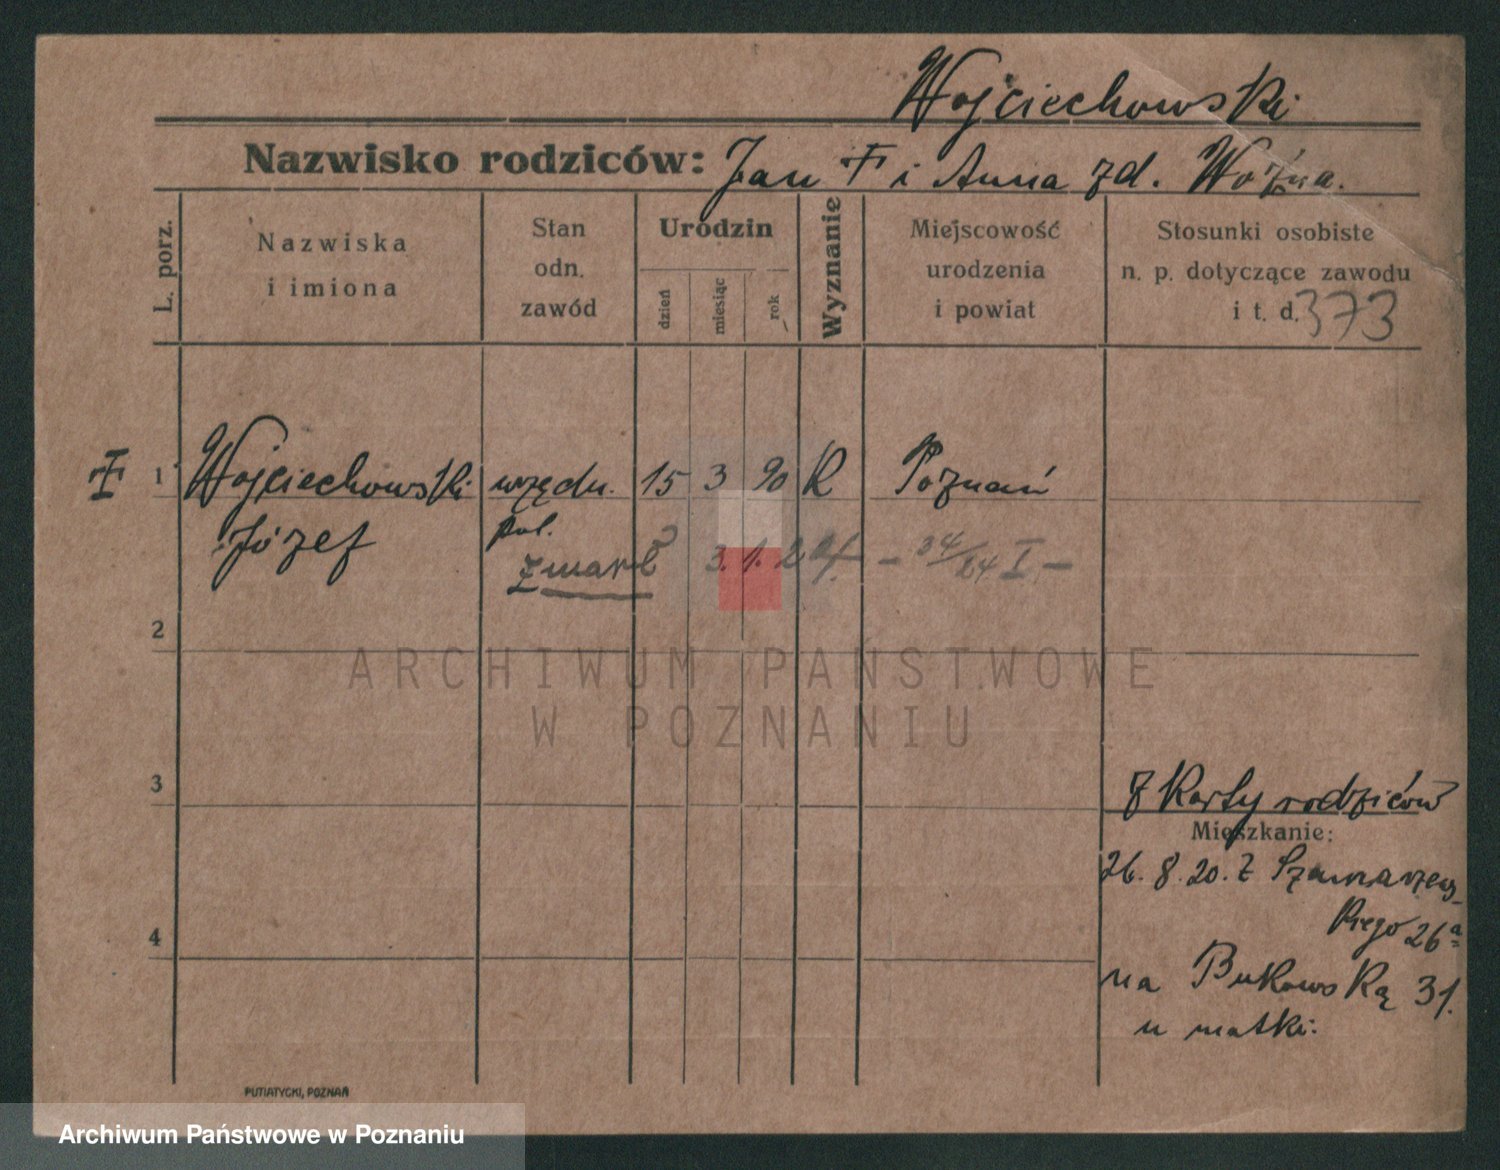 Wojciechowski
Nazwisko rodziców: Jan † i Anna zd. Woźna.
L. porz.
Nazwiska
i imiona
Stan
odn.
zawód
Urodzin
dzień
miesiąc
rok
Wyznanie
Miejscowość
urodzenia
i powiat
Stosunki osobiste
n. p. dotyczące zawodu
i t. d. 373
† 1 Wojciechowski urzędn. 15 3 90 K Poznań
Józef pol.
zmarł 3. 1. 24. - 34/24 I -
2
3
4
Z Karty rodziców
Mieszkanie:
26. 8. 20. z Szamarzew-
skiego 26a
na Bukowską 31.
u matki.
PUTIATYCKI, POZNAŃ
ARCHIWUM PAŃSTWOWE
W POZNANIU
Archiwum Państwowe w Poznaniu